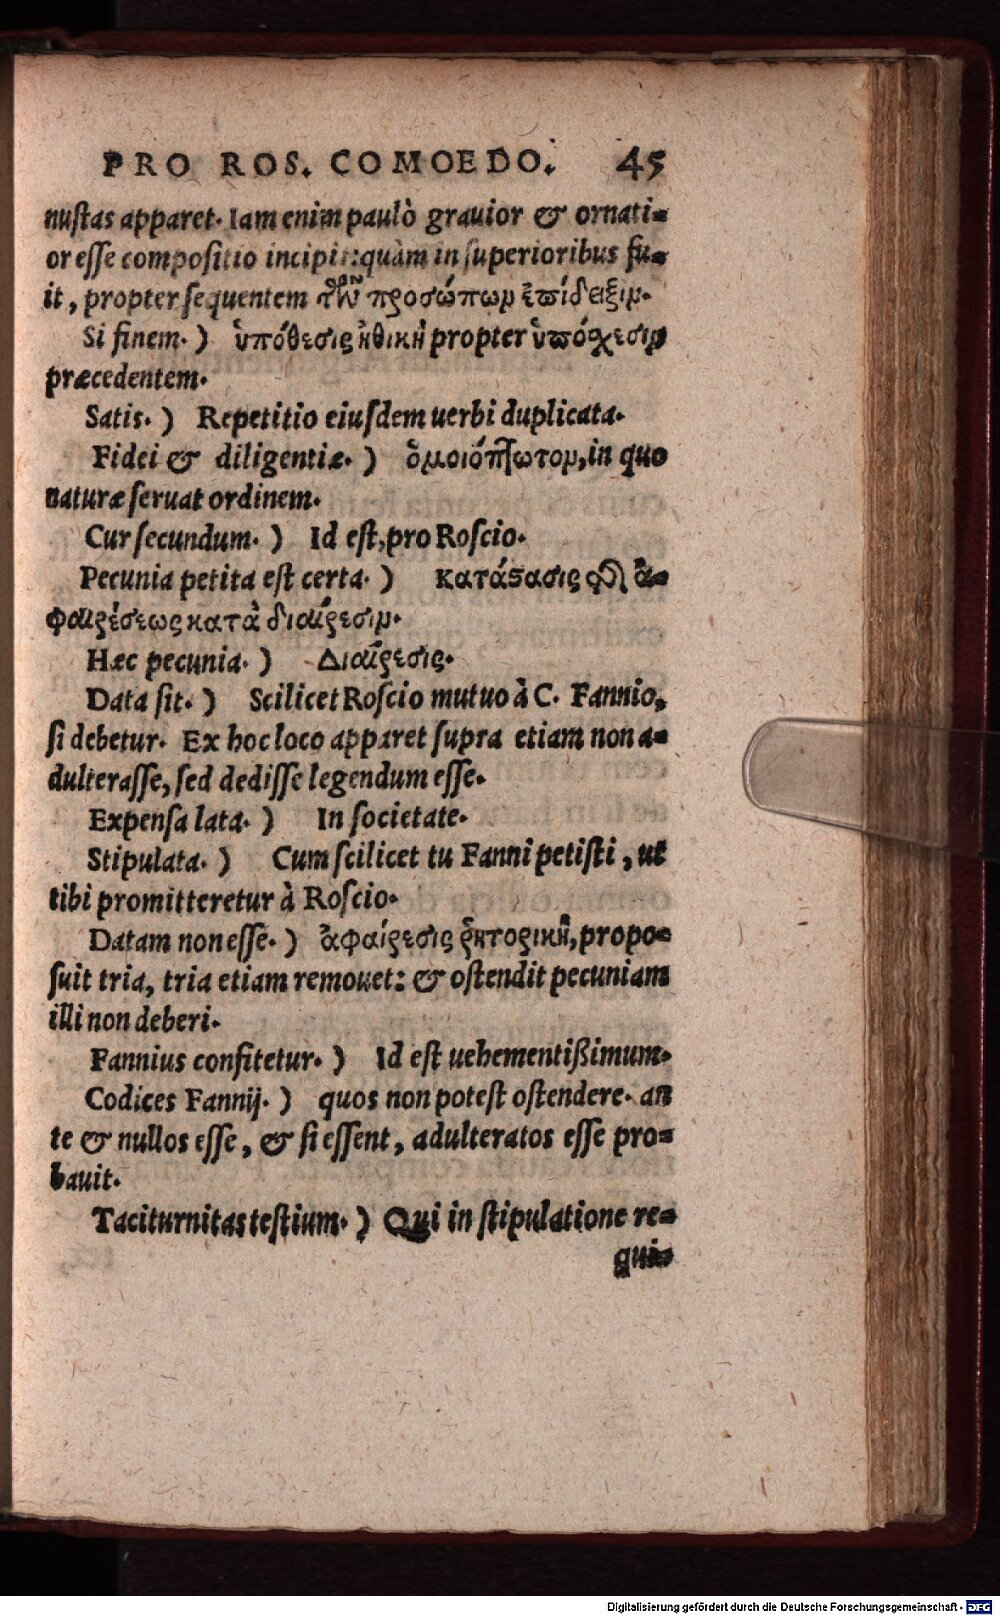 PRO ROS. COMOEDO. 45
nuſtas apparet. Iam enim paulò grauior & ornati-
or eſſe compoſitio incipit: quàm in ſuperioribus fu-
it, propter ſequentem τῶν προσώπων ἐπίδειξιν.
Si finem.) ὑπόθεσις ἠθικὴ propter ὑπόσχεσιν
præcedentem.
Satis.) Repetitio eiuſdem uerbi duplicata.
Fidei & diligentiæ.) ὁμοιόπτωτον, in quo
naturæ ſeruat ordinem.
Cur ſecundum.) Id eſt, pro Roſcio.
Pecunia petita eſt certa.) κατάϛασις ἀ-
φαιρέσεως κατὰ διαίρεσιν.
Hæc pecunia.) Διαίρεσις.
Data ſit.) Scilicet Roſcio mutuo à C. Fannio,
ſi debetur. Ex hoc loco apparet ſupra etiam non a-
dulteraſſe, ſed dediſſe legendum eſſe.
Expenſa lata.) In ſocietate.
Stipulata.) Cum ſcilicet tu Fanni petiſti, ut
tibi promitteretur à Roſcio.
Datam non eſſe.) ἀφαίρεσις ῥητορικὴ, propo-
ſuit tria, tria etiam remouet: & oſtendit pecuniam
illi non deberi.
Fannius confitetur.) Id eſt uehementißimum.
Codices Fannij.) quos non poteſt oſtendere. an
te & nullos eſſe, & ſi eſſent, adulteratos eſſe pro-
bauit.
Taciturnitas teſtium.) Qui in ſtipulatione re-
qui-
Digitalisierung gefördert durch die Deutsche Forschungsgemeinschaft - DFG